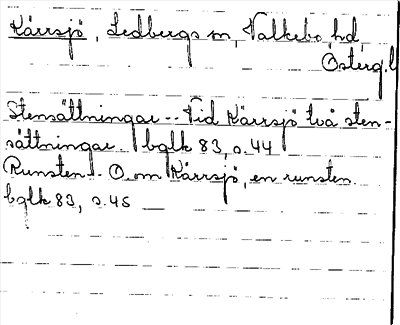 Kärrsjö, Ledbergs sn, Valkebo hd,
Österg.l
Stensättningar -- Vid Kärrsjö två sten-
sättningar. bglk 83, s.44
Runsten - O. om Kärrsjö, en runsten.
bglk 83, s.45